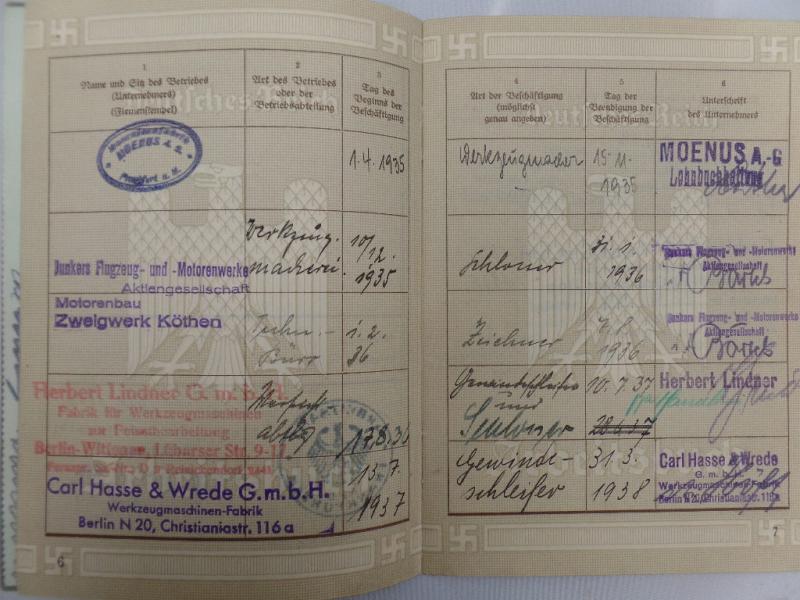 1
Name und Sitz des Betriebes
(Unternehmers)
(Firmenstempel)
2
Art des Betriebes
oder der
Betriebsabteilung
3
Tag des
Beginns der
Beschäftigung
MOENUS A.G.
Frankfurt a. M.
1.4. 1935
Junkers Flugzeug- und -Motorenwerke
Aktiengesellschaft
Motorenbau
Zweigwerk Köthen
Werkzeug-
macherei
10/
12.
1935
Techn.-
Büro
1.2.
36
Herbert Lindner G. m. b. H.
Fabrik für Werkzeugmaschinen
zur Feinstbearbeitung
Berlin-Wittenau, Lübarser Str. 9-17
17.8.36
Carl Hasse & Wrede G.m.b.H.
Werkzeugmaschinen-Fabrik
Berlin N 20, Christianiastr. 116a
13.7.
1937
6
4
Art der Beschäftigung
(möglichst
genau angeben)
5
Tag der
Beendigung der
Beschäftigung
6
Unterschrift
des Unternehmers
Deutsches Reich
Werkzeugmacher
15.11.
1935
MOENUS A.-G
Lohnbuchhaltung
Schlosser
31. 1.
1936
Junkers Flugzeug- und -Motorenwerke
Aktiengesellschaft
Zeichner
1936
Junkers Flugzeug- und -Motorenwerke
Aktiengesellschaft
Gewindeschleifer
und
Schlosser
10.7.37
Herbert Lindner
Gewinde-
schleifer
31.3.
1938
Carl Hasse & Wrede
G. m. b. H.
Werkzeugmaschinen-Fabrik
Berlin N 20, Christianiastr. 116a
7